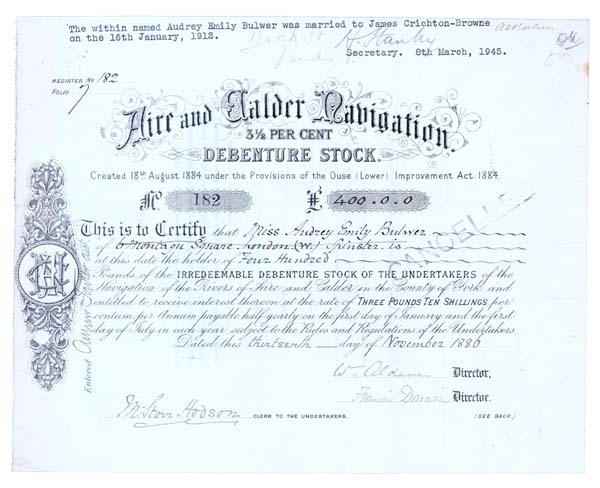 The within named Audrey Emily Bulwer was married to James Crichton-Browne
on the 16th January, 1912.
H. Stanley
Leeds
Secretary. 8th March, 1945.
REGISTER No 182
FOLIO 7
Aire and Calder Navigation.
3½ PER CENT
DEBENTURE STOCK.
Created 18th August 1884 under the Provisions of the Ouse (Lower) Improvement Act. 1884.
No. 182 £ 400.0.0
CANCELLED
This is to Certify that Miss Audrey Emily Bulwer
of 6 Square London (W.) Spinster is
at this date the holder of Four Hundred
Pounds of the IRREDEEMABLE DEBENTURE STOCK OF THE UNDERTAKERS of the
Navigation of the Rivers of Aire and Calder in the County of York and
entitled to receive interest thereon at the rate of THREE POUNDS TEN SHILLINGS per
centum per Annum payable half yearly on the first day of January and the first
day of July in each year subject to the Rules and Regulations of the Undertakers.
Dated this thirteenth day of November 1886
Entered
W. Aldam Director.
Francis Darwin Director.
Hodson CLERK TO THE UNDERTAKERS. (SEE BACK.)